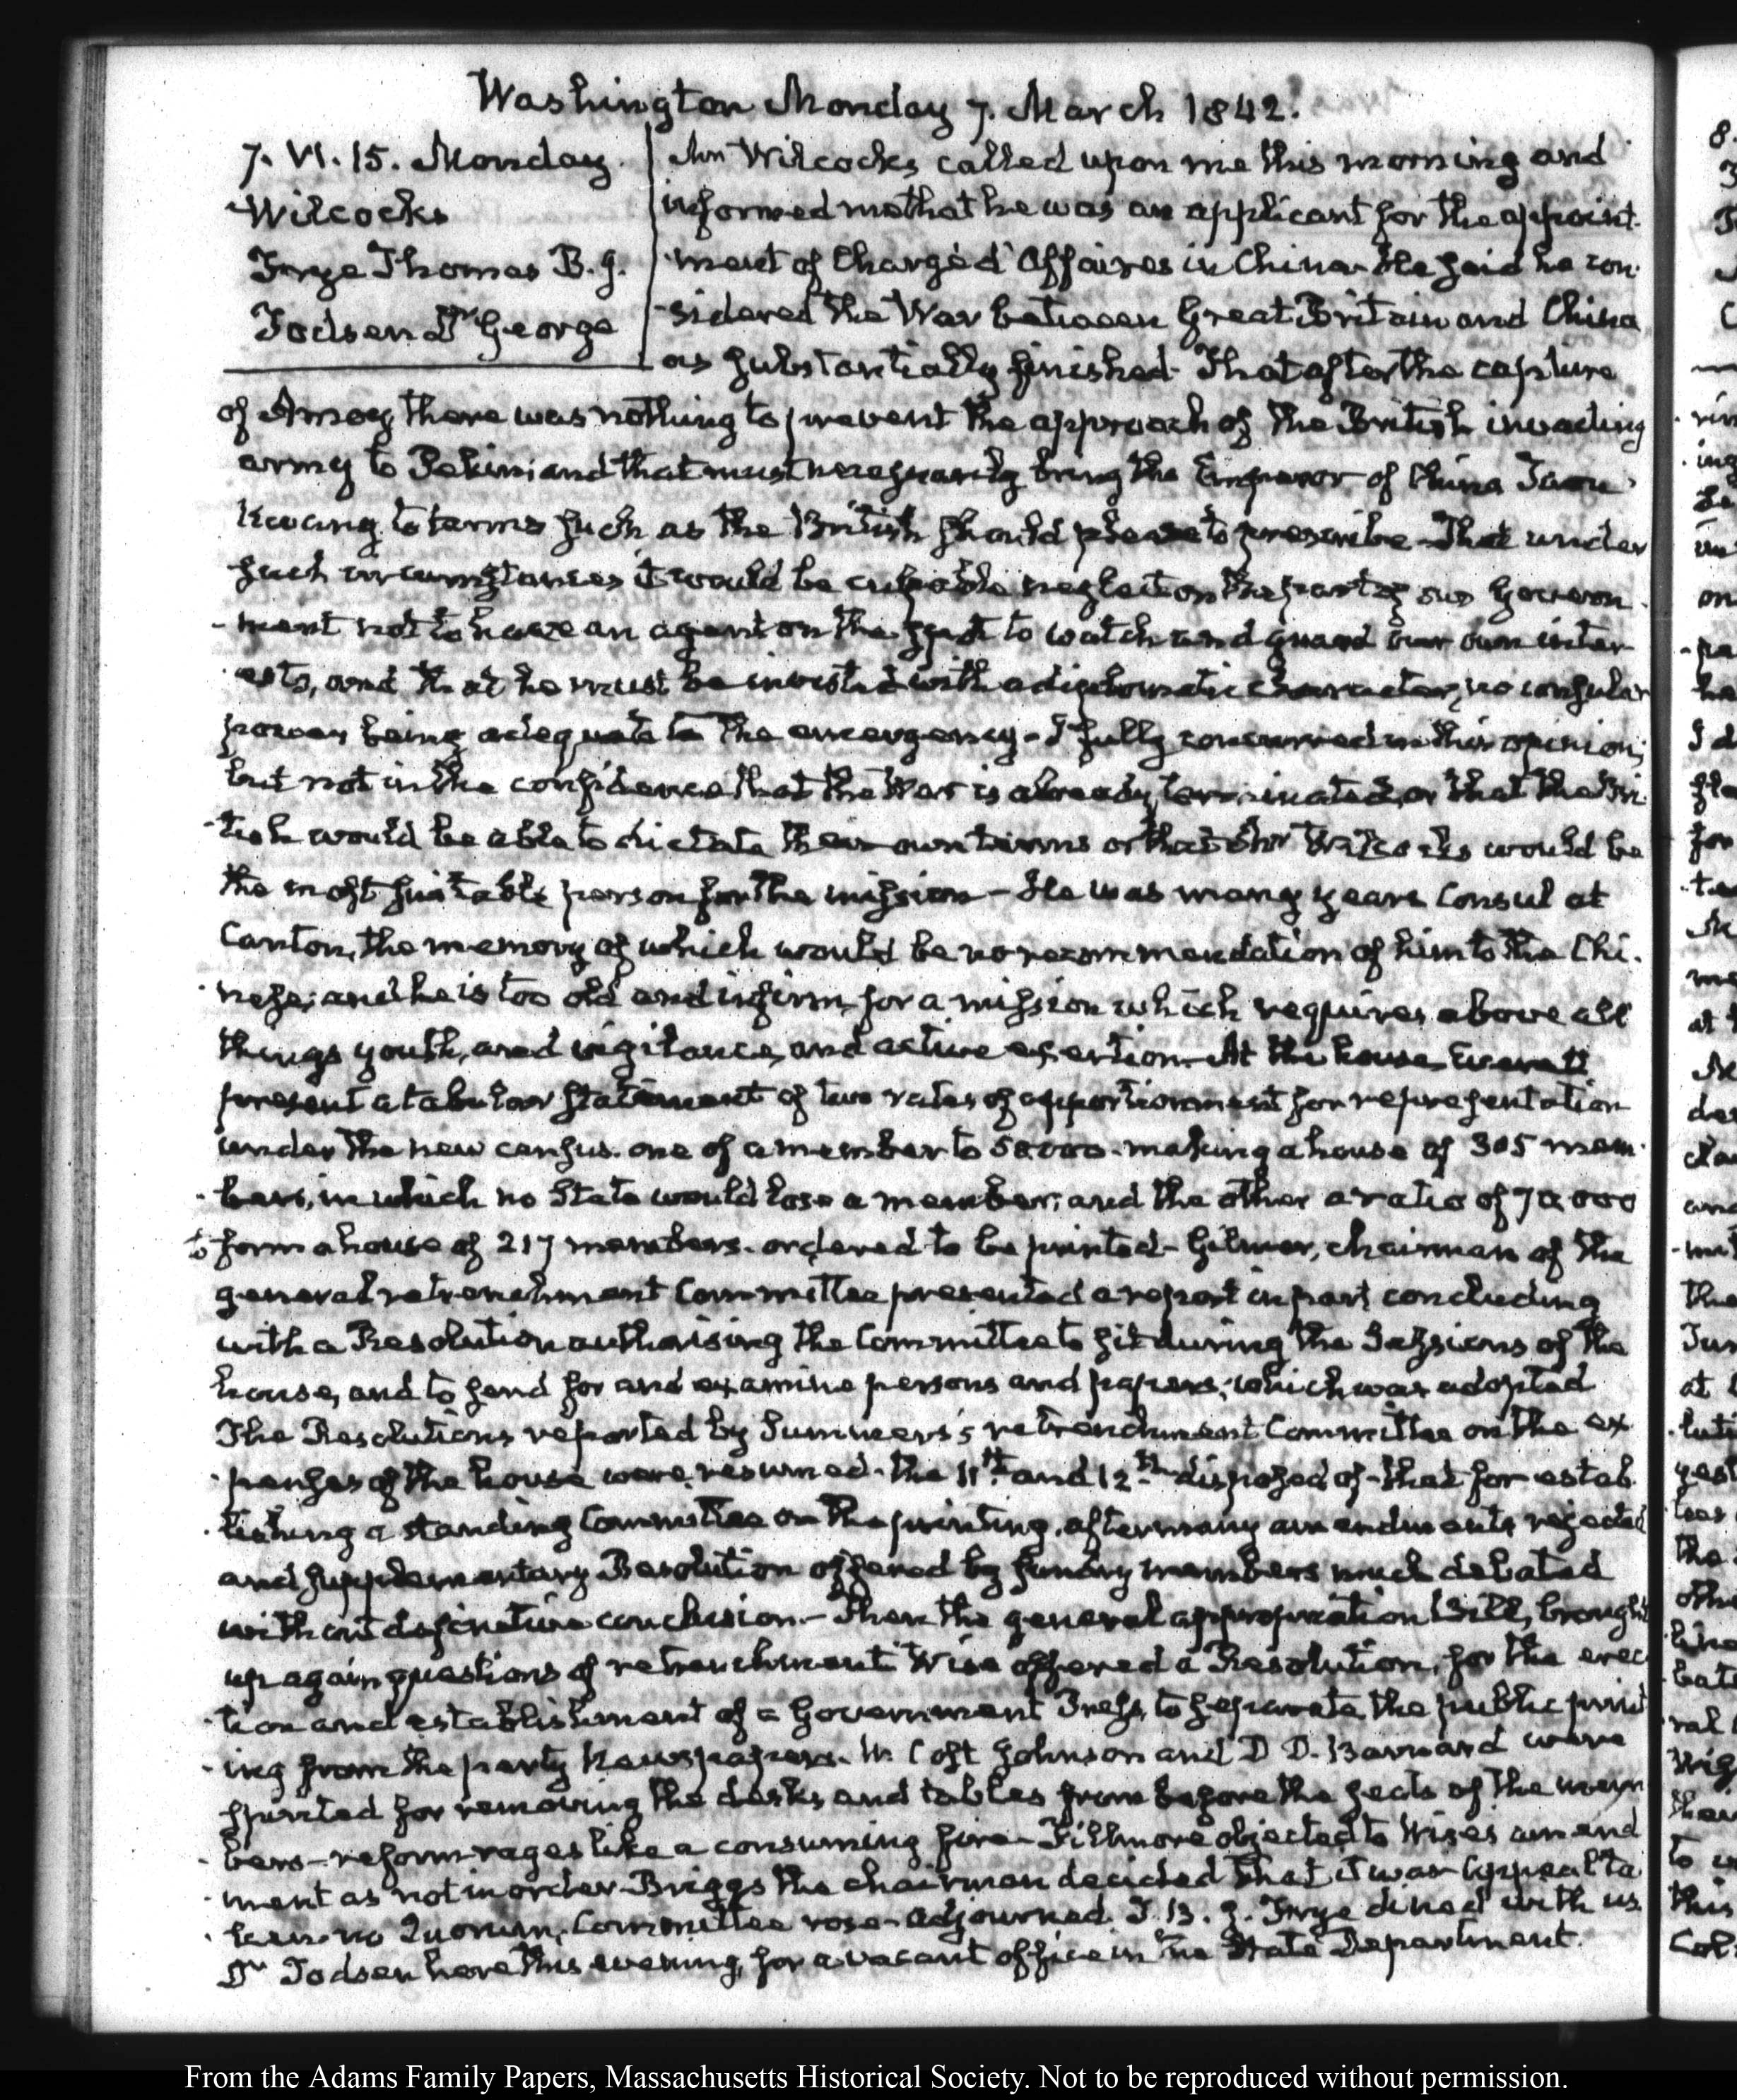 Washington Monday 7. March 1842.
7. VI. 15. Monday.
Wilcocks
Frye Thomas B. J.
Todsen Dr. George
Mr Wilcocks, called upon me this morning and
informed me that he was an applicant for the appoint-
-ment of Chargé d'Affaires in China. He said he con-
-sidered the War between Great Britain and China
as substantially finished- That after the capture
of Amoy there was nothing to prevent the approach of the British invading
army to Pekin; and that must necessarily bring the Emperor of China Taou
Kwang, to terms such as the British should please to prescribe- That under
such circumstances it would be culpable neglect on the part of our Govern-
-ment not to have an agent on the spot to watch and guard our own inter-
-ests, and that he must be invested with a diplomatic character, no consular
power being adequate to the emergency- I fully concurred in this opinion;
but not in the confidence that the War is already terminated, or that the Bri-
-tish would be able to dictate their own terms or that Mr Wilcocks would be
the most suitable person for the mission- He was many years Consul at
Canton, the memory of which would be no recommendation of him to the Chi-
-nese; and he is too old and infirm, for a mission which requires above all
things youth, and vigilance, and active exertion- At the house Everett
present a tabular statement of two rates of apportionment for representation
under the new census. one of a member to 50000. making a house of 305 mem-
-bers, in which no State would lose a member; and the other a ratio of 70,000
to form a house of 217 members. ordered to be printed- Gilmer, chairman of the
general retrenchment Committee presented a report in part concluding
with a Resolution authorising the Committee to sit during the Sessions of the
house, and to send for and examine persons and papers; which was adopted
The Resolutions reported by Summers's retrenchment Committee on the ex-
-penses of the house were resumed. the 11th and 12th disposed of- that for estab-
-lishing a standing Committee on the printing. after many amendments rejected
and supplementary Resolution offered by sundry members much debated
without definitive conclusion- Then the general appropriation Bill, brought
up again questions of retrenchment Wise offered a Resolution, for the erec-
-tion and establishment of a Government Press, to separate the public print-
-ing from the party Newspapers. W. Cost Johnson and D D. Barnard were
spirited for removing the desks, and tables from before the seats of the mem-
-bers- reform rages like a consuming fire- Fillmore objected to Wise's amend-
-ment as not in order- Briggs the chairman decided that it was Appeal ta-
-ken- no Quorum, Committee rose- adjourned. T. B. J. Frye dined with us.
Dr Todsen here this evening, for a vacant office in the State Department.
From the Adams Family Papers, Massachusetts Historical Society. Not to be reproduced without permission.